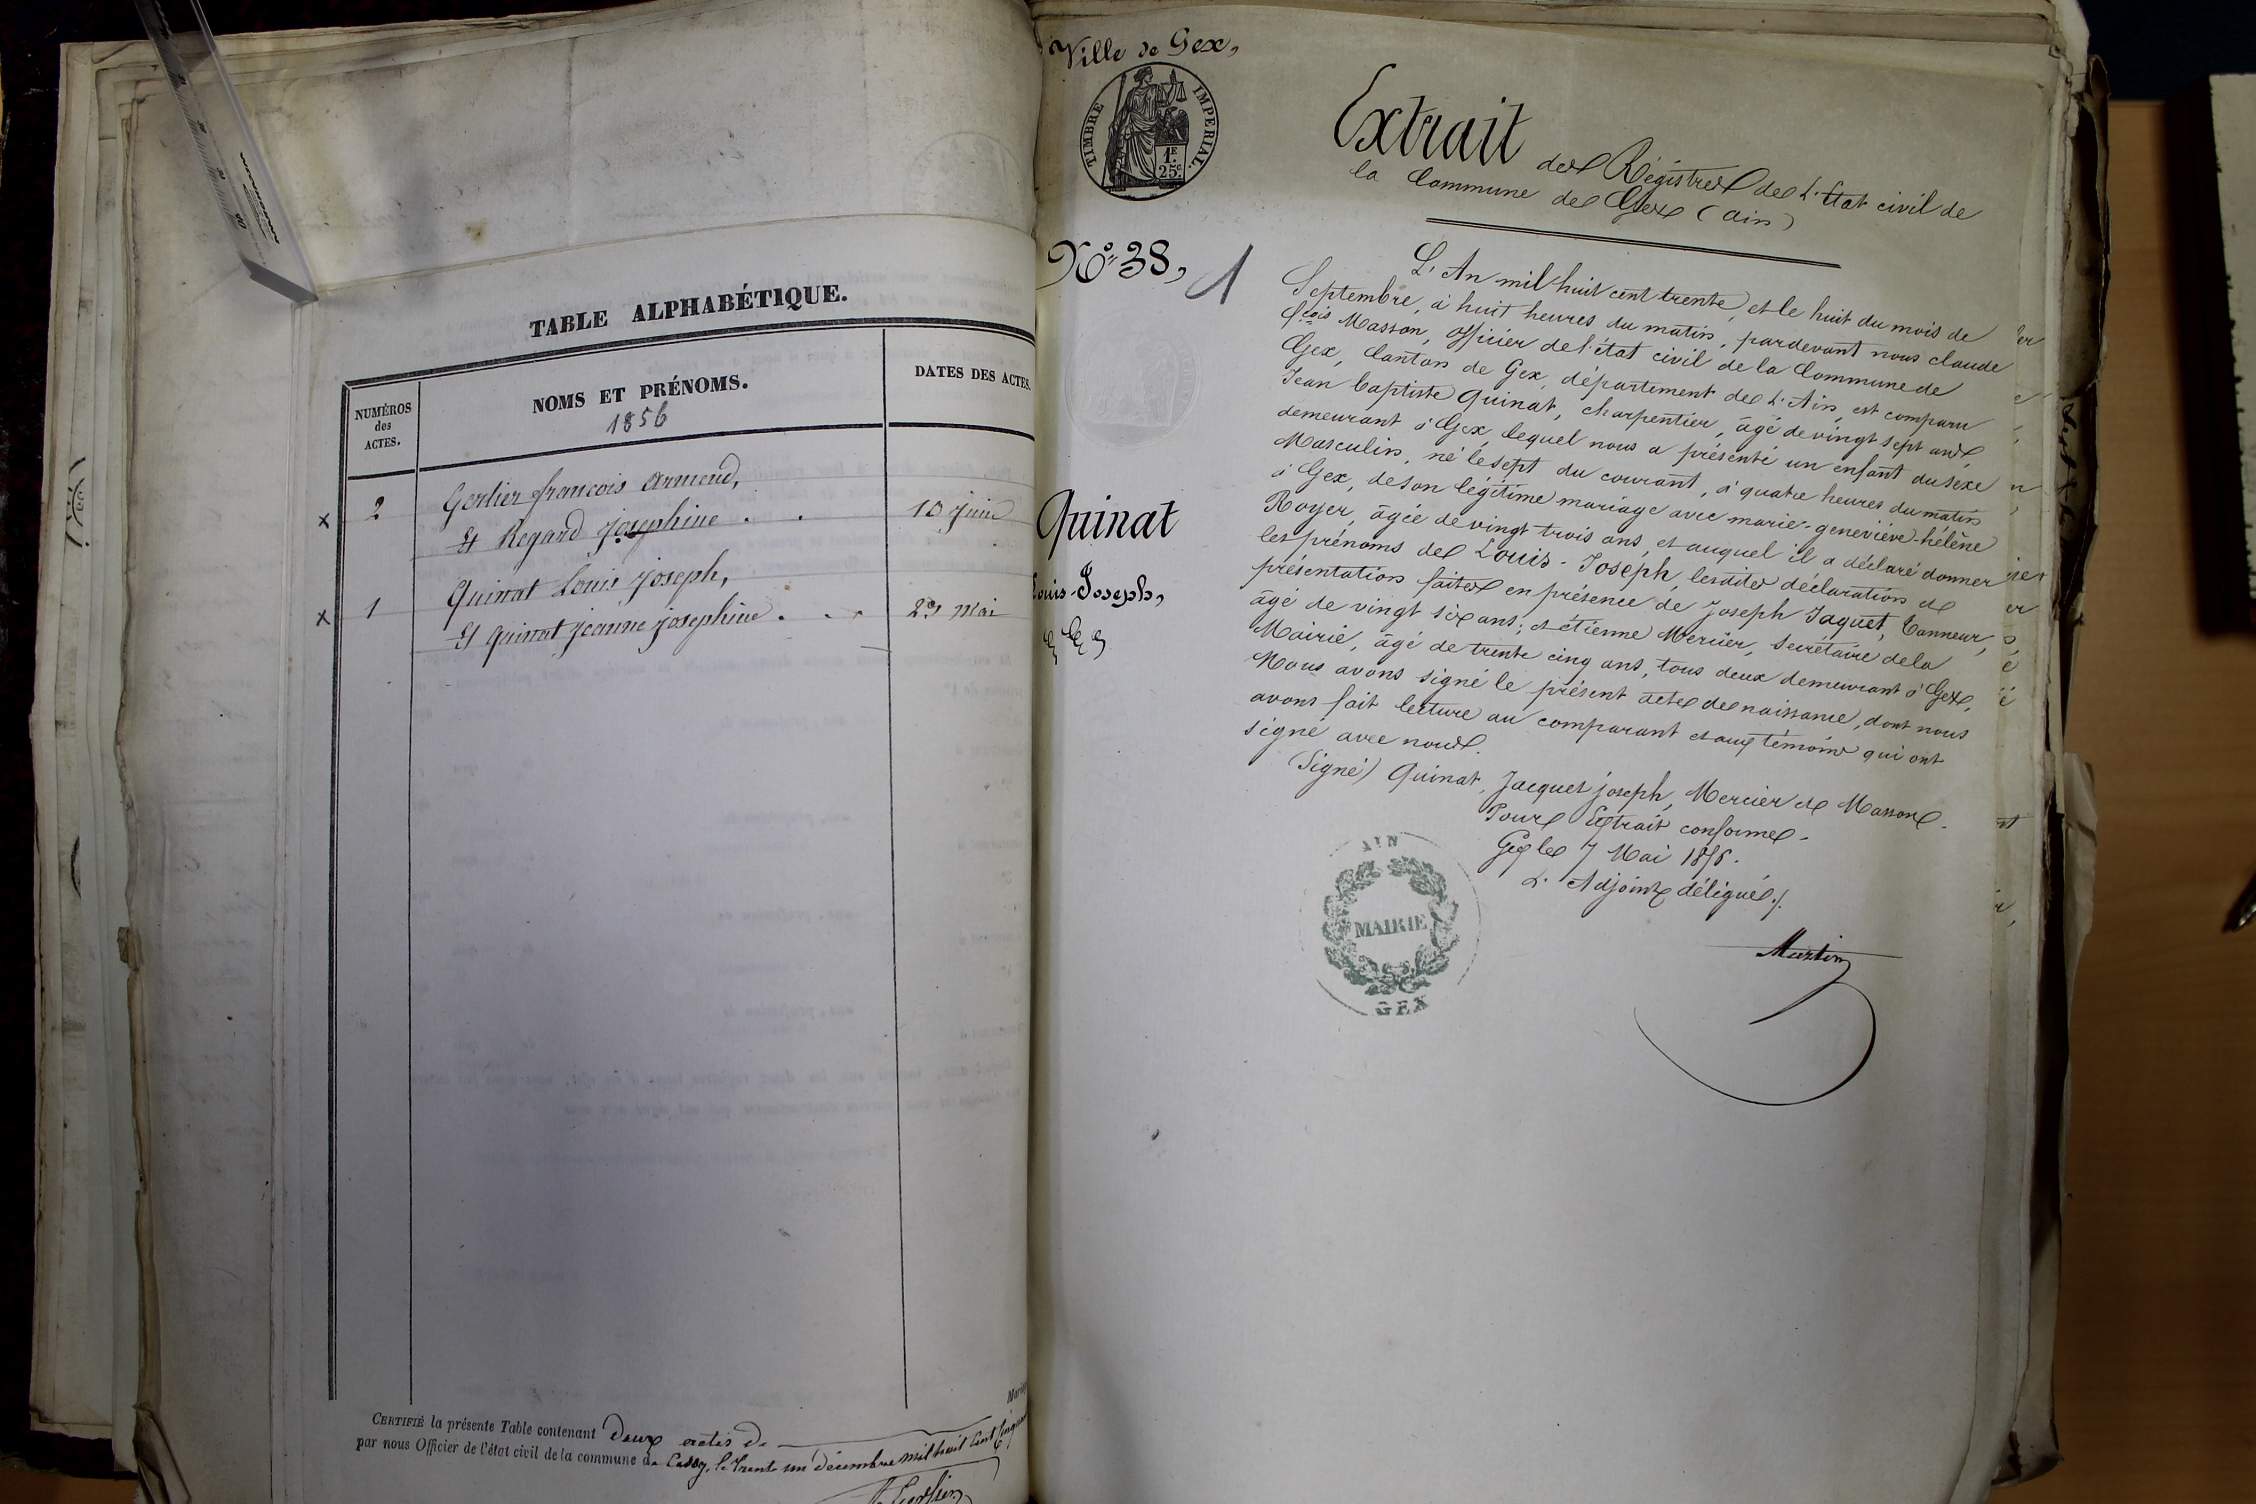 TABLE ALPHABÉTIQUE.
NUMÉROS
des
ACTES.
NOMS ET PRÉNOMS.
1856
DATES DES ACTES.
x 2 Gerlier françois Armand,
Et Regard josephine . . 10 juin
x 1 Quinat Louis joseph,
Et Quinat jeanne josephine . . . 29 Mai
CERTIFIÉ la présente Table contenant deux actes de
par nous Officier de l'état civil de la commune de Cessy, le trente un décembre mil huit cent
Ville de Gex,
TIMBRE IMPERIAL.
1F
25c.
N° 38, 1
Quinat
Louis-Joseph,
Extrait des Régistres de L'État civil de
la Commune de Gex (Ain)
L'An mil huit cent trente, et le huit du mois de
Septembre, à huit heures du matin, pardevant nous claude
fçois Masson, officier de l'état civil de la Commune de
Gex, Canton de Gex, département de L'Ain, est comparu
Jean Baptiste Quinat, charpentier, âgé de vingt sept ans,
demeurant à Gex, lequel nous a présenté un enfant du sexe
Masculin, né le sept du courant, à quatre heures du matin
à Gex, de son légitime mariage avec marie-geneviève-hélène
Royer, âgée de vingt trois ans, et auquel il a déclaré donner
les prénoms de Louis-Joseph, lesdites déclaration et
présentation faites en présence de Joseph Jaquet, tanneur,
âgé de vingt six ans; et étienne Mercier, Secrétaire de la
Mairie, âgé de trente cinq ans, tous deux demeurant à Gex,
Nous avons signé le présent acte de naissance, dont nous
avons fait lecture au comparant et aux témoins qui ont
signé avec nous.
(Signé) Quinat, Jacquet joseph, Mercier et Masson.
Pour Extrait conforme.
Gex le 7 Mai 1856.
L'Adjoint délégué./.
Martin
AIN
MAIRIE
GEX